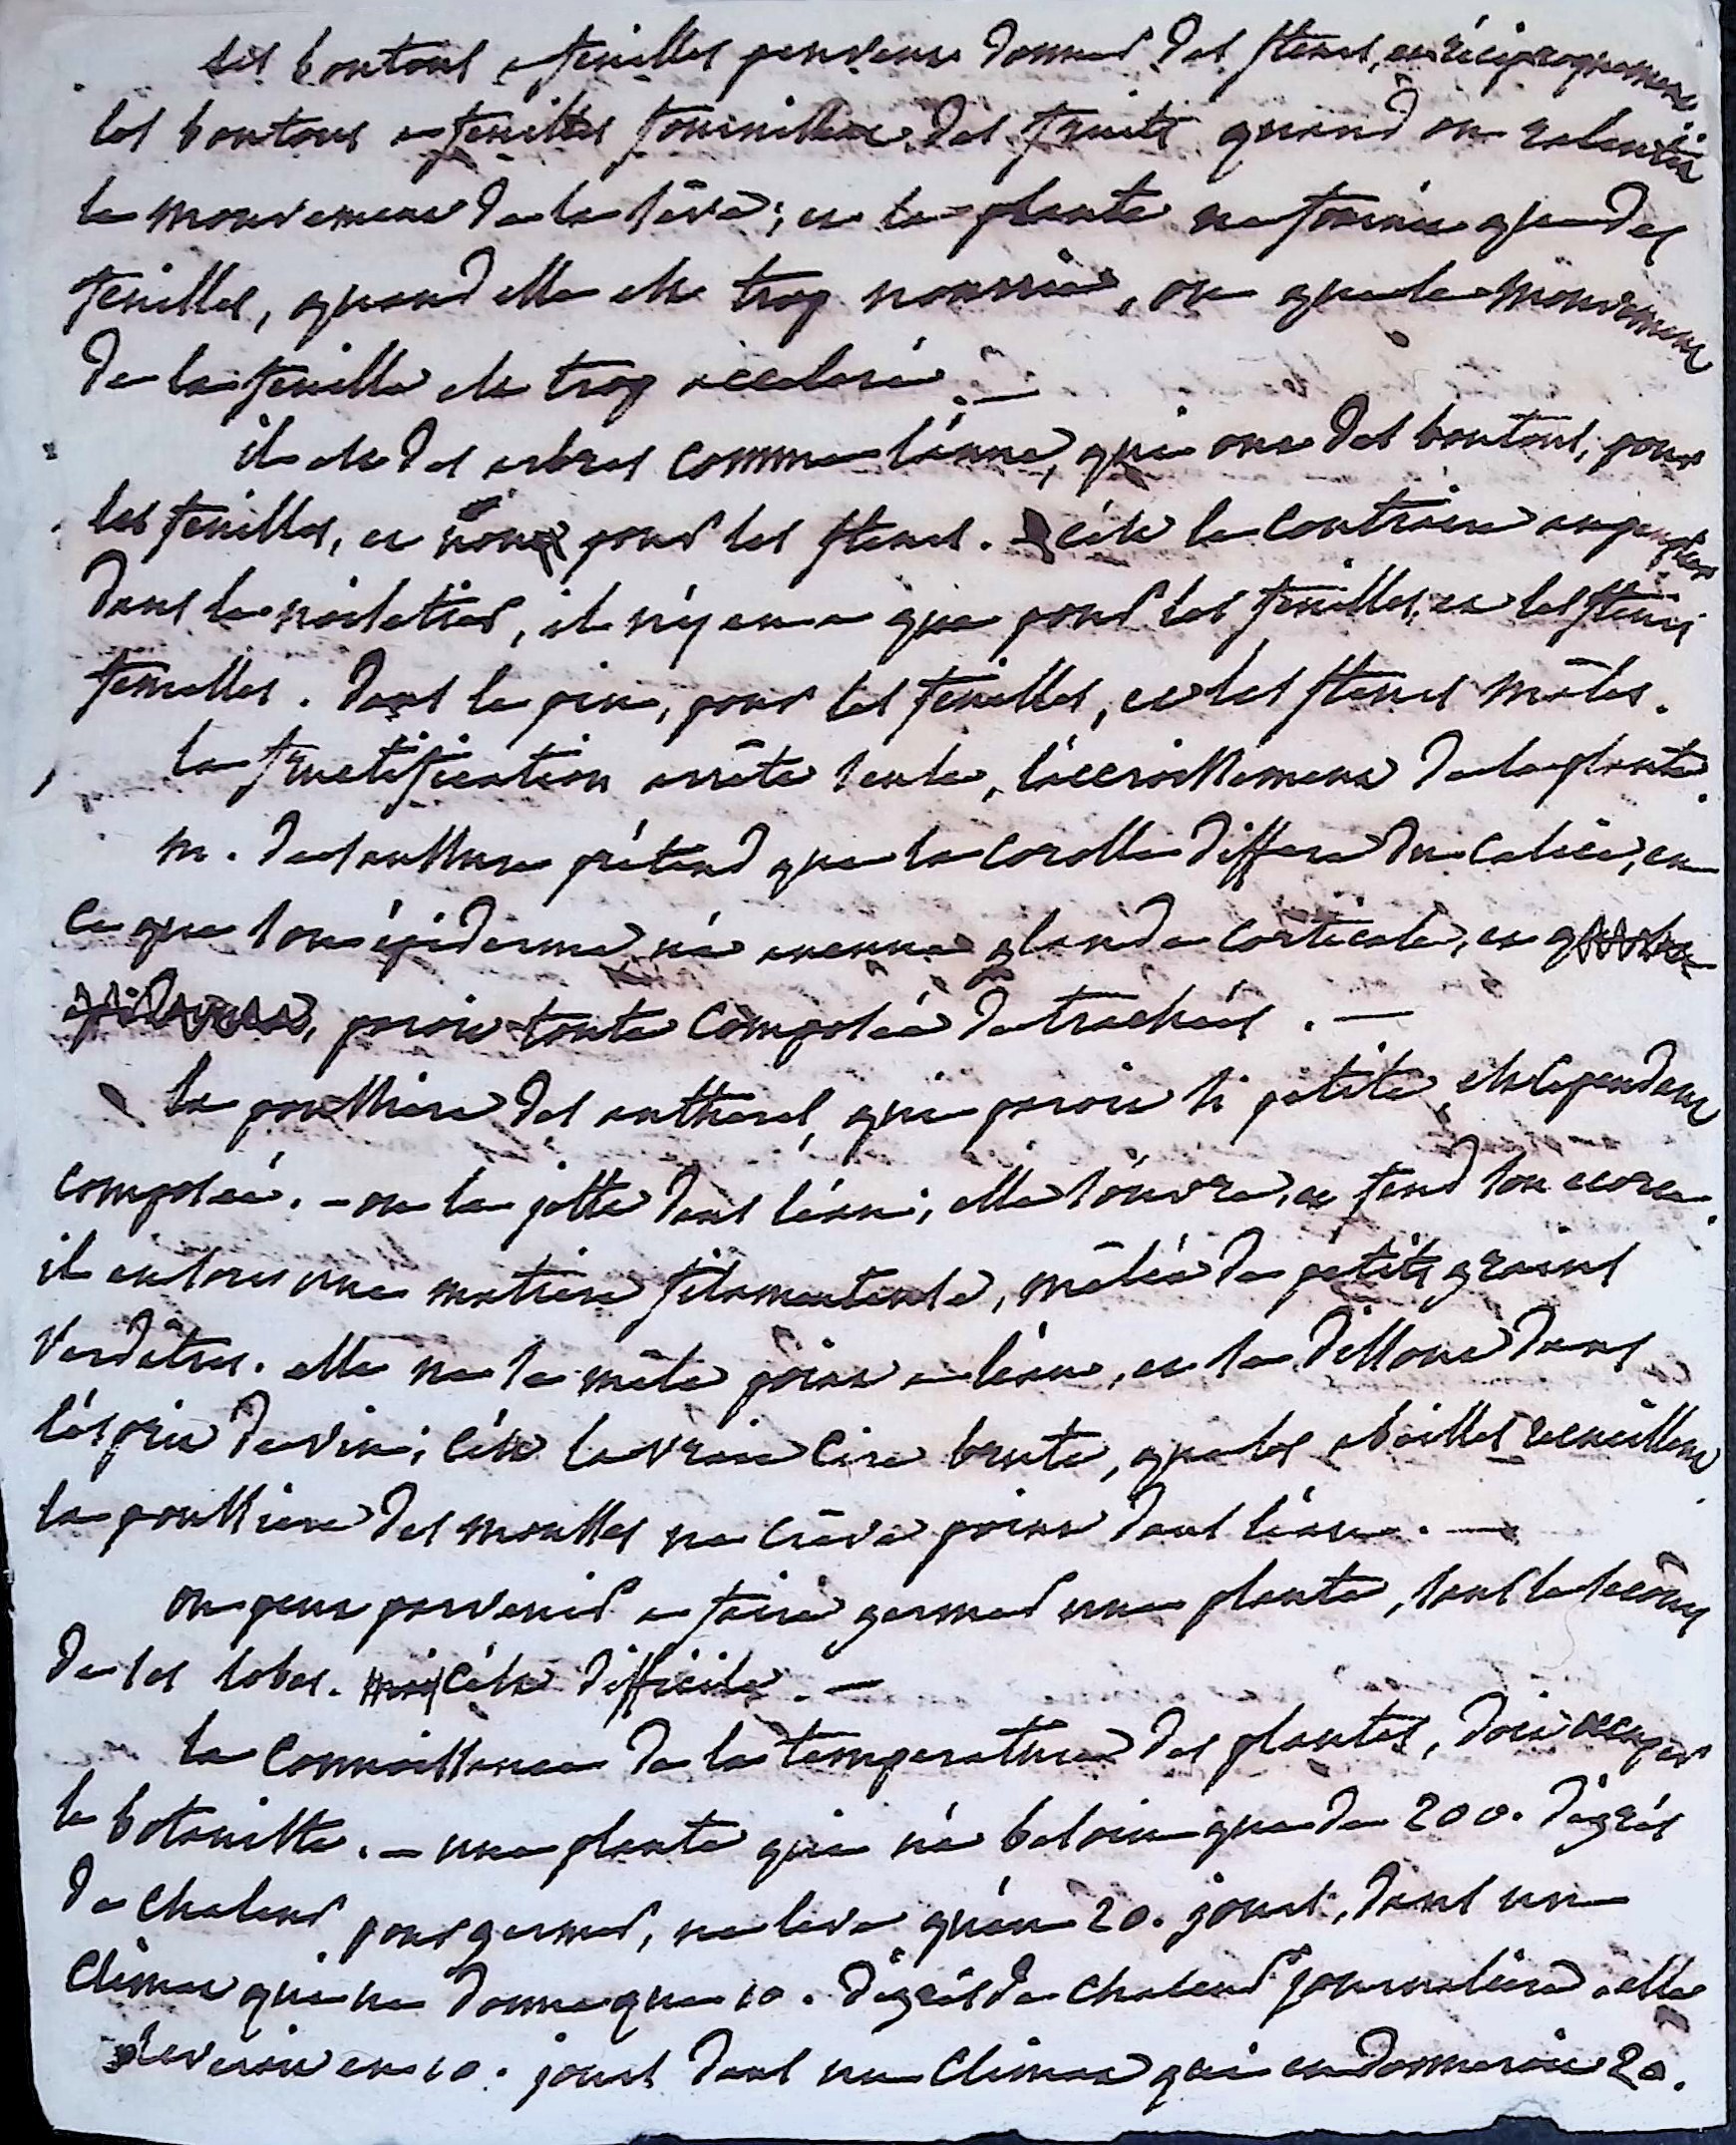 les boutons a feuilles peuvent donner des fleurs, et réciproquement
les boutons a feuilles fournissent des fruits quand on ralentit
le mouvement de la séve; et la plante ne fournit que des
feuilles, quand elle est trop nourrie, ou que le mouvement
de la feuille est trop acceleré. —
il est des arbres comme l'aune, qui ont des boutons, pour
les feuilles, et non pour les fleurs. c'est le contraire au peuplier
dans le noisetier, il n'y en a que pour les feuilles, et les fleurs
femelles. dans le pin, pour les feuilles, et les fleurs mâles.
la fructification arrête seule, l'accroissement de la plante.
m. desaussure prétend que la corolle differe du calice, en
ce que son épiderme, n'a aucune glande corticale, et
paroit toute composée de trachées. —
la poussiere des antheres, qui paroit si petite, est cependant
composée. — on la jette dans l'eau; elle s'ouvre, et fend son ecorce.
il en sort une matiere filamenteuse, mêlée de petits grains
verdâtres. elle ne se mêle point a l'eau, et se dissout dans
l'esprit de vin; c'est la vraie cire brute, que les abeilles recueillent
la poussiere des mousses ne créve point dans l'eau. —
on peut parvenir a faire germer une plante, sans le secours
de ses lobes. c'est difficile. —
la connoissance de la temperature des plantes, doit occuper
le botaniste. — une plante qui n'a besoin que de 200. dégrés
de chaleur pour germer, ne leve qu'en 20. jours, dans un
climat qui ne donne que 10. dégrés de chaleur journaliere. elle
leveroit en 10. jours dans un climat qui en donneroit 20.